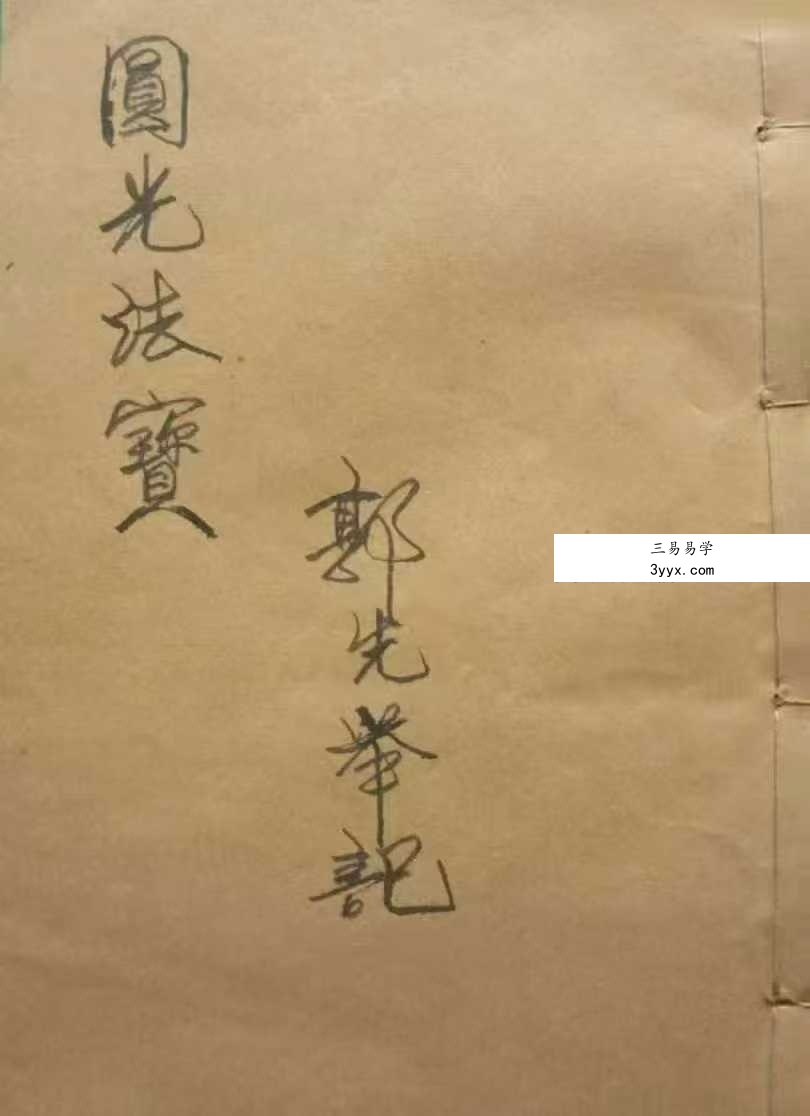 圓光法寶
郭先举記
三易易学
3yyx.com